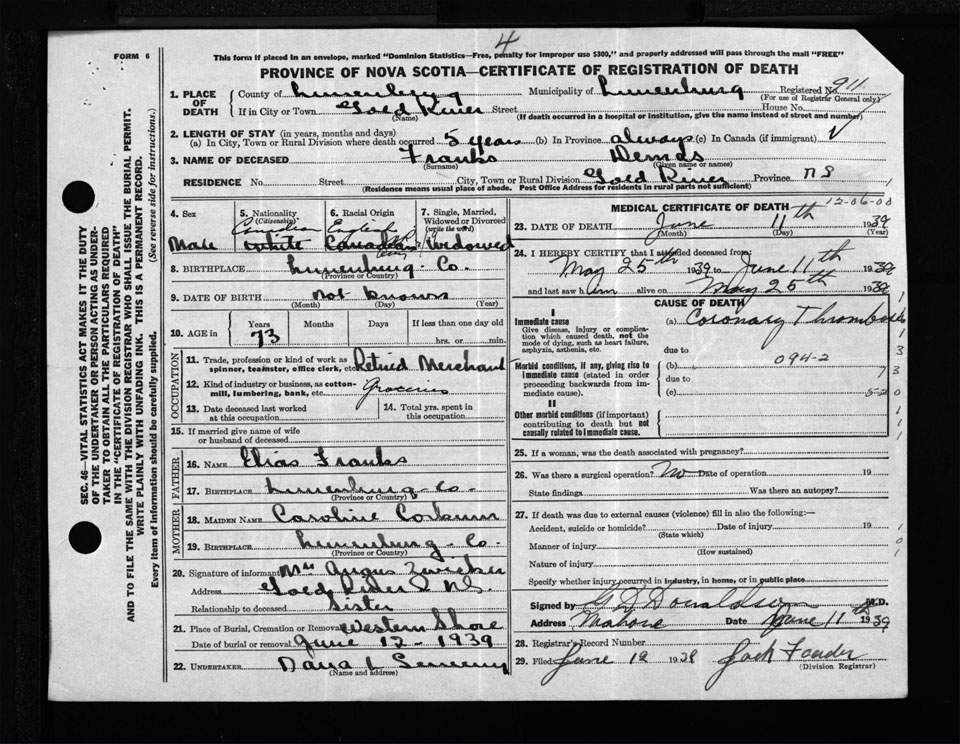 4
FORM 6
This form if placed in an envelope, marked "Dominion Statistics—Free, penalty for improper use $300," and properly addressed will pass through the mail "FREE"
PROVINCE OF NOVA SCOTIA—CERTIFICATE OF REGISTRATION OF DEATH
1. PLACE OF DEATH County of Lunenburg Municipality of Lunenburg Registered No. 911
(For use of Registrar General only)
If in City or Town Gold River Street House No.
(Name) (If death occurred in a hospital or institution, give the name instead of street and number)
2. LENGTH OF STAY (in years, months and days)
(a) In City, Town or Rural Division where death occurred 5 years (b) In Province always (c) In Canada (if immigrant)
3. NAME OF DECEASED Franks Demas
(Surname) (Given name or names)
RESIDENCE No. Street City, Town or Rural Division Gold River Province N S
(Residence means usual place of abode. Post Office Address for residents in rural parts not sufficient)
4. Sex Male
5. Nationality (Citizenship) Canadian White
6. Racial Origin English Canadian
7. Single, Married, Widowed or Divorced (write the word) Widowed
8. BIRTHPLACE Lunenburg Co.
(Province or Country)
9. DATE OF BIRTH not known
(Month) (Day) (Year)
10. AGE in Years Months Days If less than one day old
73 hrs. or min.
OCCUPATION
11. Trade, profession or kind of work as spinner, teamster, office clerk, etc. Retired Merchant
12. Kind of industry or business, as cotton-mill, lumbering, bank, etc. Groceries
13. Date deceased last worked at this occupation
14. Total yrs. spent in this occupation
15. If married give name of wife or husband of deceased
FATHER
16. NAME Elias Franks
17. BIRTHPLACE Lunenburg Co.
(Province or Country)
MOTHER
18. MAIDEN NAME Caroline Corkum
19. BIRTHPLACE Lunenburg Co.
(Province or Country)
20. Signature of informant Mrs Angus Zwicker
Address Gold River N.S.
Relationship to deceased Sister
21. Place of Burial, Cremation or Removal Western Shore
Date of burial or removal June 12 - 1939
22. UNDERTAKER
(Name and address)
MEDICAL CERTIFICATE OF DEATH
12-06-00
23. DATE OF DEATH June 11th 1939
(Month) (Day) (Year)
24. I HEREBY CERTIFY that I attended deceased from:
May 25th 1939 to June 11th 1939
and last saw him alive on May 25th 1939
CAUSE OF DEATH
I
Immediate cause
Give disease, injury or complication which caused death, not the mode of dying, such as heart failure, asphyxia, asthenia, etc.
(a) Coronary Thrombosis
due to
Morbid conditions, if any, giving rise to immediate cause (stated in order proceeding backwards from immediate cause).
(b) 094-2
due to
(c)
II
Other morbid conditions (if important) contributing to death but not causally related to immediate cause.
25. If a woman, was the death associated with pregnancy?
26. Was there a surgical operation? No Date of operation 19
State findings Was there an autopsy?
27. If death was due to external causes (violence) fill in also the following:—
Accident, suicide or homicide? Date of injury 19
(State which)
Manner of injury
(How sustained)
Nature of injury
Specify whether injury occurred in industry, in home, or in public place
Signed by G D Donaldson M.D.
Address Mahone Date June 11th 1939
28. Registrar's Record Number
29. Filed June 12 1939 Jack Feader
(Division Registrar)
SEC. 46—VITAL STATISTICS ACT MAKES IT THE DUTY
OF THE UNDERTAKER OR PERSON ACTING AS UNDER-
TAKER TO OBTAIN ALL THE PARTICULARS REQUIRED
IN THE "CERTIFICATE OF REGISTRATION OF DEATH"
AND TO FILE THE SAME WITH THE DIVISION REGISTRAR WHO SHALL ISSUE THE BURIAL PERMIT.
WRITE PLAINLY WITH UNFADING INK. THIS IS A PERMANENT RECORD.
Every item of information should be carefully supplied. (See reverse side for instructions.)